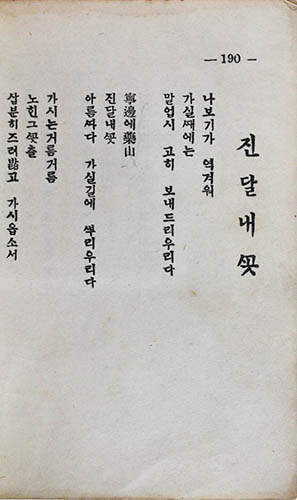 — 190 —
진달내ᄭᅩᆺ
나보기가 역겨워
가실ᄯᅢ에는
말업시 고히 보내드리우리다
寧邊에藥山
진달내ᄭᅩᆺ
아름ᄯᅡ다 가실길에 ᄲᅮ리우리다
가시는거름거름
노힌그ᄭᅩᆺ츨
삽분히즈려밟고 가시옵소서